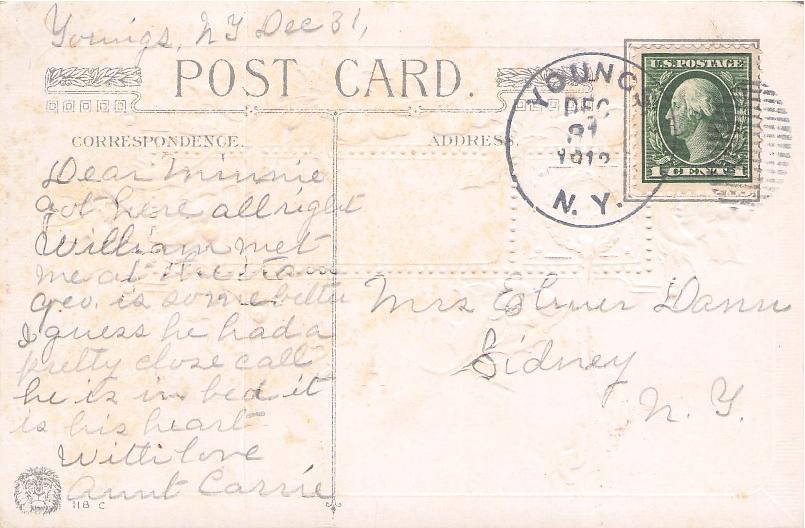 Youngs, NY Dec 31,
POST CARD.
CORRESPONDENCE.
ADDRESS.
YOUNGS
DEC
31
1912
N.Y.
U.S. POSTAGE
1 CENT 1
Dear Minnie
got here all right
William met
me at the train
Geo. is some better
I guess he had a
pretty close call
he is in bed it
is his heart
With love
Aunt Carrie
Mrs Elmer Dann
Sidney
N. Y.
118 C